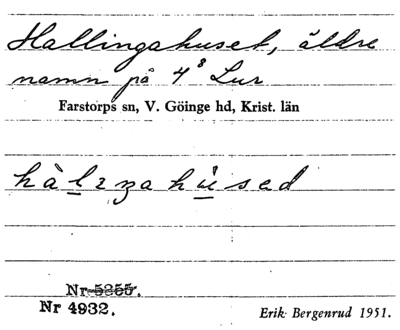 Hallingahuset, äldre
namn på 4⁸ Lur
Farstorps sn, V. Göinge hd, Krist. län
Nr 5355.
Nr 4932.
Erik Bergenrud 1951.